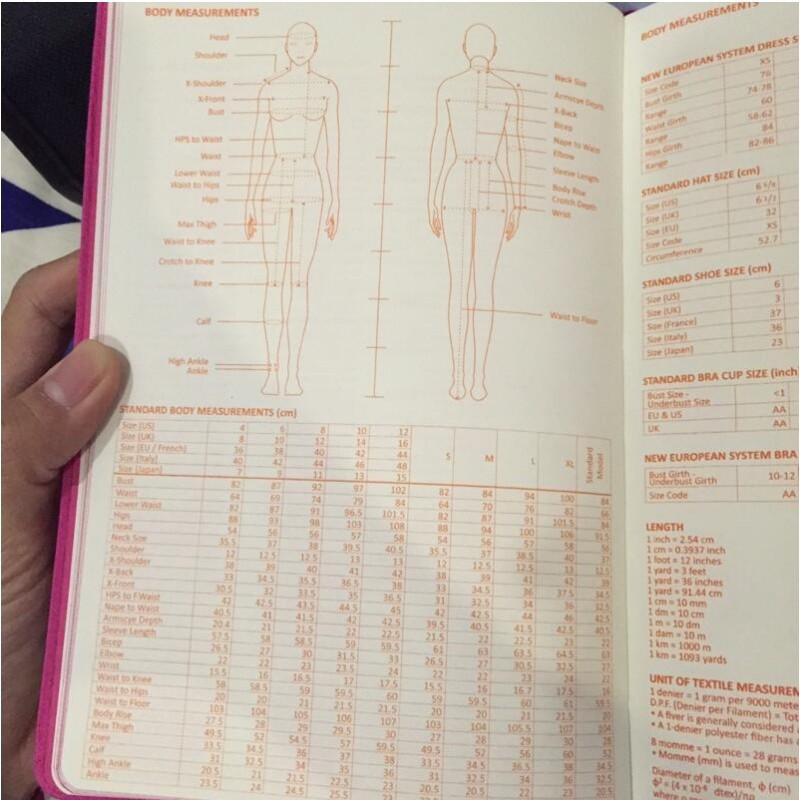 BODY MEASUREMENTS
Head
Shoulder
X-Shoulder
X-Front
Bust
HPS to Waist
Waist
Lower Waist
Waist to Hips
Hips
Max Thigh
Waist to Knee
Crotch to Knee
Knee
Calf
High Ankle
Ankle
Neck Size
Armscye Depth
X-Back
Bicep
Nape to Waist
Elbow
Sleeve Length
Body Rise
Crotch Depth
Wrist
Waist to Floor
STANDARD BODY MEASUREMENTS (cm)
Size (US) 4 6 8 10 12
Size (UK) 8 10 12 14 16
Size (EU / French) 36 38 40 42 44
Size (Italy) 40 42 44 46 48
Size (Japan) 7 9 11 13 15
S M L XL Standard Model
Bust 82 87 92 97 102 82 84 94 100 84
Waist 64 69 74 79 84 64 70 76 82 66
Lower Waist 82 87 91 96.5 101.5 82 87 91 101.5 84
Hips 88 93 98 103 108 88 94 100 106 91.5
Head 54 56 56 57 58 54 56 57 58 56
Neck Size 35.5 37 38 39.5 40.5 35.5 37 38.5 40 37
Shoulder 12 12.5 12.5 13 13 12 12.5 12.5 13 12.5
X-Shoulder 38 39 40 41 42 38 39 41 42 39
X-Back 33 34.5 35.5 36.5 38 33 34.5 36 37.5 34.5
X-Front 30.5 32 33.5 35 36.5 31 32.5 34 36 32.5
HPS to F.Waist 42 42.5 43.5 44.5 45 42 42.5 44 46 42.5
Nape to Waist 40.5 41 41.5 42 42.5 39.5 40.5 41.5 42.5 40.5
Armscye Depth 20.4 21 21.5 22 22.5 21.5 22 22.5 23 22
Sleeve Length 57.5 58 58.5 59 59.5 61 63 63.5 64.5 63
Bicep 26.5 27 30 31.5 33 26.5 27 30.5 32.5 27
Elbow 22 22 23 23.5 24 22 22 23 24 22
Wrist 15.5 16 16.5 17 17.5 15.5 16 16.7 17.5 16
Waist to Knee 58 58.5 59 59.5 60 59 59.5 60 61 59.5
Waist to Hips 20 20 21 21.5 21.5 20 20 21 21.5 20
Waist to Floor 103 104 105 106 107 103 104 105.5 107 104
Body Rise 27.5 28 29 29.5 30 27 28 29 30 28
Max Thigh 49.5 52 54.5 57 59.5 49.5 56 60 52
Knee 33.5 34.5 36 37 38 33.5 34.5 36.5 38 34.5
Calf 31 32.5 34 35 36 31 32.5 34 36 32.5
High Ankle 20.5 21 21.5 22.5 23 20.5 20.5 22 23 20.5
Ankle 23.5 24 24.5 25.5
BODY MEASUREMENTS
NEW EUROPEAN SYSTEM DRESS S
Size Code XS
Bust Girth 76
Range 74-78
Waist Girth 60
Range 58-62
Hips Girth 84
Range 82-86
STANDARD HAT SIZE (cm)
Size (US) 6 5/8
Size (UK) 6 1/2
Size (EU) 32
Size Code XS
Circumference 52.7
STANDARD SHOE SIZE (cm)
Size (US) 6
Size (UK) 3
Size (France) 37
Size (Italy) 36
Size (Japan) 23
STANDARD BRA CUP SIZE (inch
Bust Size - Underbust Size <1
EU & US AA
UK AA
NEW EUROPEAN SYSTEM BRA
Bust Girth - Underbust Girth 10-12
Size Code AA
LENGTH
1 inch = 2.54 cm
1 cm = 0.3937 inch
1 foot = 12 inches
1 yard = 3 feet
1 yard = 36 inches
1 yard = 91.44 cm
1 cm = 10 mm
1 dm = 10 cm
1 m = 10 dm
1 dam = 10 m
1 km = 1000 m
1 km = 1093 yards
UNIT OF TEXTILE MEASUREM
1 denier = 1 gram per 9000 mete
D.P.F. (Denier per Filament) = Tot
• A fiver is generally considered
• A 1-denier polyester fiber has
8 momme = 1 ounce = 28 grams
• Momme (mm) is used to meas
Diameter of a filament, ϕ (cm)